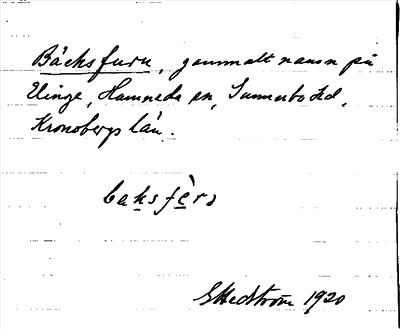 Bäcksfuru, gammalt namn på
Elinge, Hamneda sn, Sunnerbo hd,
Kronobergs län.
baksfèrɔ
G Hedström 1920